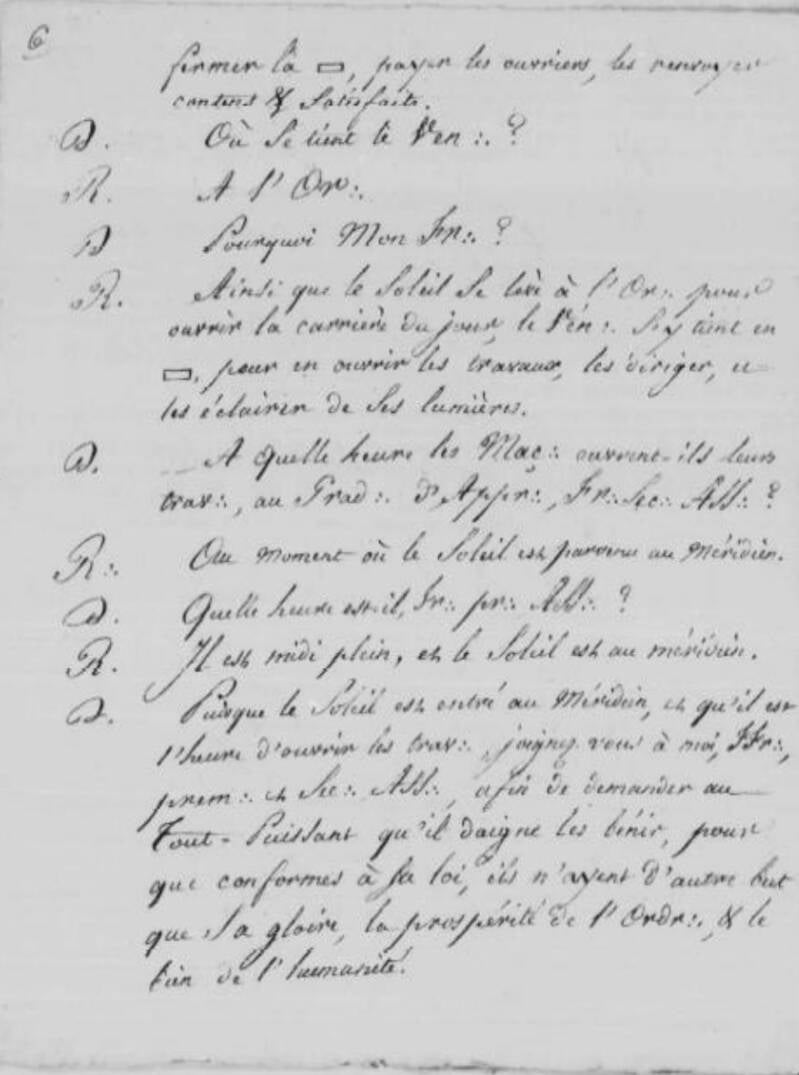 6
fermer la ▭, payer les ouvriers, les renvoyer
contens & satisfaits.
D. Où se tient le Ven∴ ?
R. A l'Or∴
D Pourquoi Mon Fr∴ ?
R. Ainsi que le Soleil se lève à l'Or∴ pour
ouvrir la carrière du jour, le Vén∴ s'y tient en
▭, pour en ouvrir les travaux, les diriger, et
les éclairer de ses lumières.
D. A quelle heure les Maç∴ ouvrent-ils leurs
trav∴, au Grad∴ d'Appr∴, Fr∴ Sec∴ Ass∴ ?
R∴ Au moment où le Soleil est parvenu au méridien.
D. Quelle heure est-il, Fr∴ pr∴ Ass∴ ?
R. Il est midi plein, et le Soleil est au méridien.
D. Puisque le Soleil est entré au Méridien, et qu'il est
l'heure d'ouvrir les trav∴, joignez vous à moi, FFr∴,
prem∴ et Sec∴ Ass∴, afin de demander au
Tout-Puissant qu'il daigne les bénir, pour
que conformes à sa loi, ils n'ayent d'autre but
que sa gloire, la prospérité de l'Ordr∴, & le
bien de l'humanité.